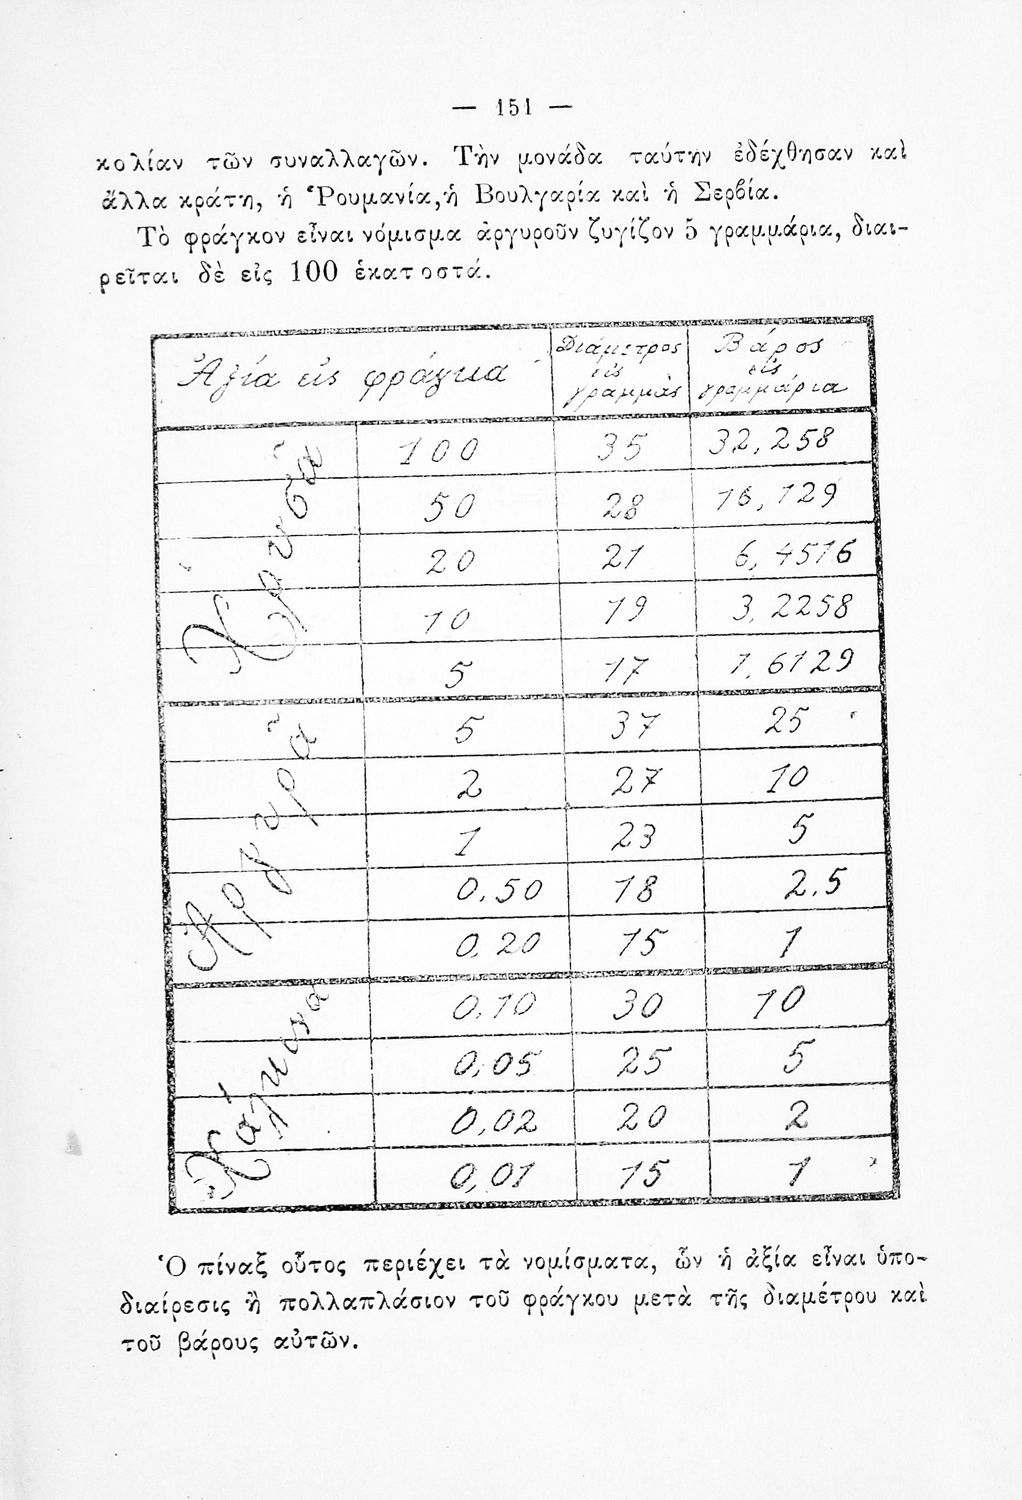 — 151 —
κολίαν τῶν συναλλαγῶν. Τὴν μονάδα ταύτην ἐδέχθησαν καὶ
ἄλλα κράτη, ἡ Ῥουμανία,ἡ Βουλγαρία καὶ ἡ Σερβία.
Τὸ φράγκον εἶναι νόμισμα ἀργυροῦν ζυγίζον 5 γραμμάρια, διαι-
ρεῖται δὲ εἰς 100 ἑκατοστά.
Ἀξία εἰς φράγκα Διάμετρος εἰς γραμμὰς Βάρος εἰς γραμμάρια
Χρυσᾶ
100 35 32,258
50 28 16,129
20 21 6,4516
10 19 3,2258
5 17 1.6129
Ἀργυρᾶ
5 37 25
2 27 10
1 23 5
0,50 18 2,5
0,20 15 1
Χάλκινα
0,10 30 10
0,05 25 5
0,02 20 2
0,01 15 1
Ὁ πίναξ οὗτος περιέχει τὰ νομίσματα, ὧν ἡ ἀξία εἶναι ὑπο-
διαίρεσις ἢ πολλαπλάσιον τοῦ φράγκου μετὰ τῆς διαμέτρου καὶ
τοῦ βάρους αὐτῶν.